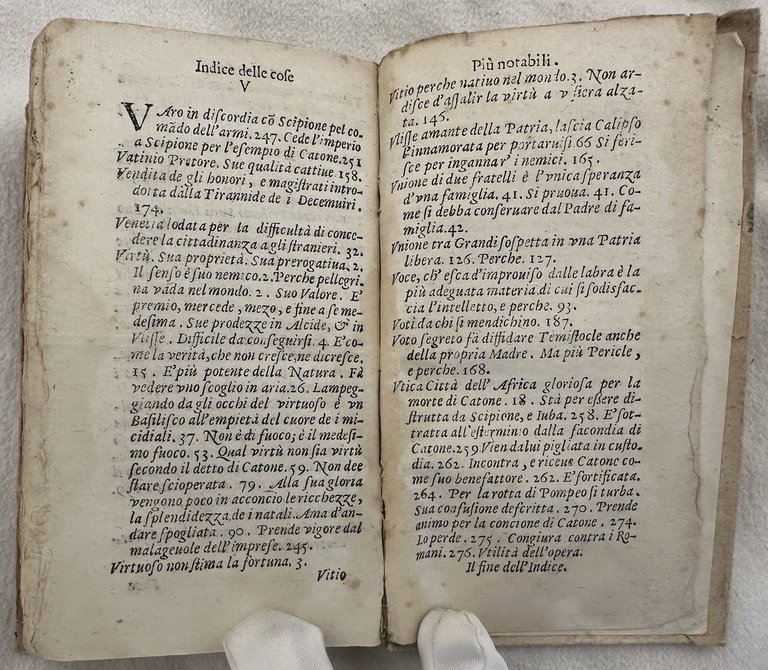 Indice delle coſe
V
VAro in diſcordia cõ Scipione pel co-
mãdo dell'armi. 247. Cede l'imperio
a Scipione per l'eſempio di Catone. 251
Vatinio Pretore. Sue qualità cattiue. 158.
Vendita de gli honori, e magiſtrati intro-
dotta dalla Tirannide de i Decemuiri.
174.
Venetia lodata per la difficultà di conce-
dere la cittadinanza a gli ſtranieri. 32.
Virtù. Sua proprietà. Sua prerogatiua. 2.
Il ſenſo è ſuo nemico. 2. Perche pellegri-
na vada nel mondo. 2. Suo Valore. E'
premio, mercede, mezo, e fine a ſe me-
deſima. Sue prodezze in Alcide, & in
Vliſſe. Difficile da conſeguirſi. 4. E' co-
me la verità, che non creſce, ne dicreſce.
15. E' più potente della Natura. Fà
vedere vno ſcoglio in aria. 26. Lampeg-
giando da gli occhi del virtuoſo è vn
Baſiliſco all'empietà del cuore de i mi-
cidiali. 37. Non è di fuoco; è il medeſi-
mo fuoco. 53. Qual virtù non ſia virtù
ſecondo il detto di Catone. 59. Non dee
ſtare ſcioperata. 79. Alla ſua gloria
vengono poco in acconcio le ricchezze,
la ſplendidezza de i natali. Ama d'an-
dare ſpogliata. 90. Prende vigore dal
malageuole dell'impreſe. 245.
Virtuoſo non ſtima la fortuna. 3.
Vitio
Più notabili.
Vitio perche natiuo nel mondo. 3. Non ar-
diſce d'aſſalir la virtù a viſiera alza-
ta. 146.
Vliſſe amante della Patria, laſcia Calipſo
l'innamorata per portaruiſi. 66 Si feri-
ſce per ingannar' i nemici. 165.
Vnione di due fratelli è l'vnica ſperanza
d'vna famiglia. 41. Si pruoua. 41. Co-
me ſi debba conſeruare dal Padre di fa-
miglia. 42.
Vnione tra Grandi ſoſpetta in vna Patria
libera. 126. Perche. 127.
Voce, ch' eſca d'improuiſo dalle labra è la
più adeguata materia di cui ſi ſodisfac-
cia l'intelletto, e perche. 93.
Voti da chi ſi mendichino. 187.
Voto ſegreto fà diffidare Temiſtocle anche
della propria Madre. Ma più Pericle,
e perche. 168.
Vtica Città dell' Africa glorioſa per la
morte di Catone. 18. Stà per eſſere di-
ſtrutta da Scipione, e Iuba. 258. E' ſot-
tratta all'eſterminio dalla facondia di
Catone. 259. Vien da lui pigliata in cuſto-
dia. 262. Incontra, e riceue Catone co-
me ſuo benefattore. 262. E' fortificata.
264. Per la rotta di Pompeo ſi turba.
Sua confuſione deſcritta. 270. Prende
animo per la concione di Catone. 274.
Lo perde. 275. Congiura contra i Ro-
mani. 276. Vtilità dell'opera.
Il fine dell'Indice.